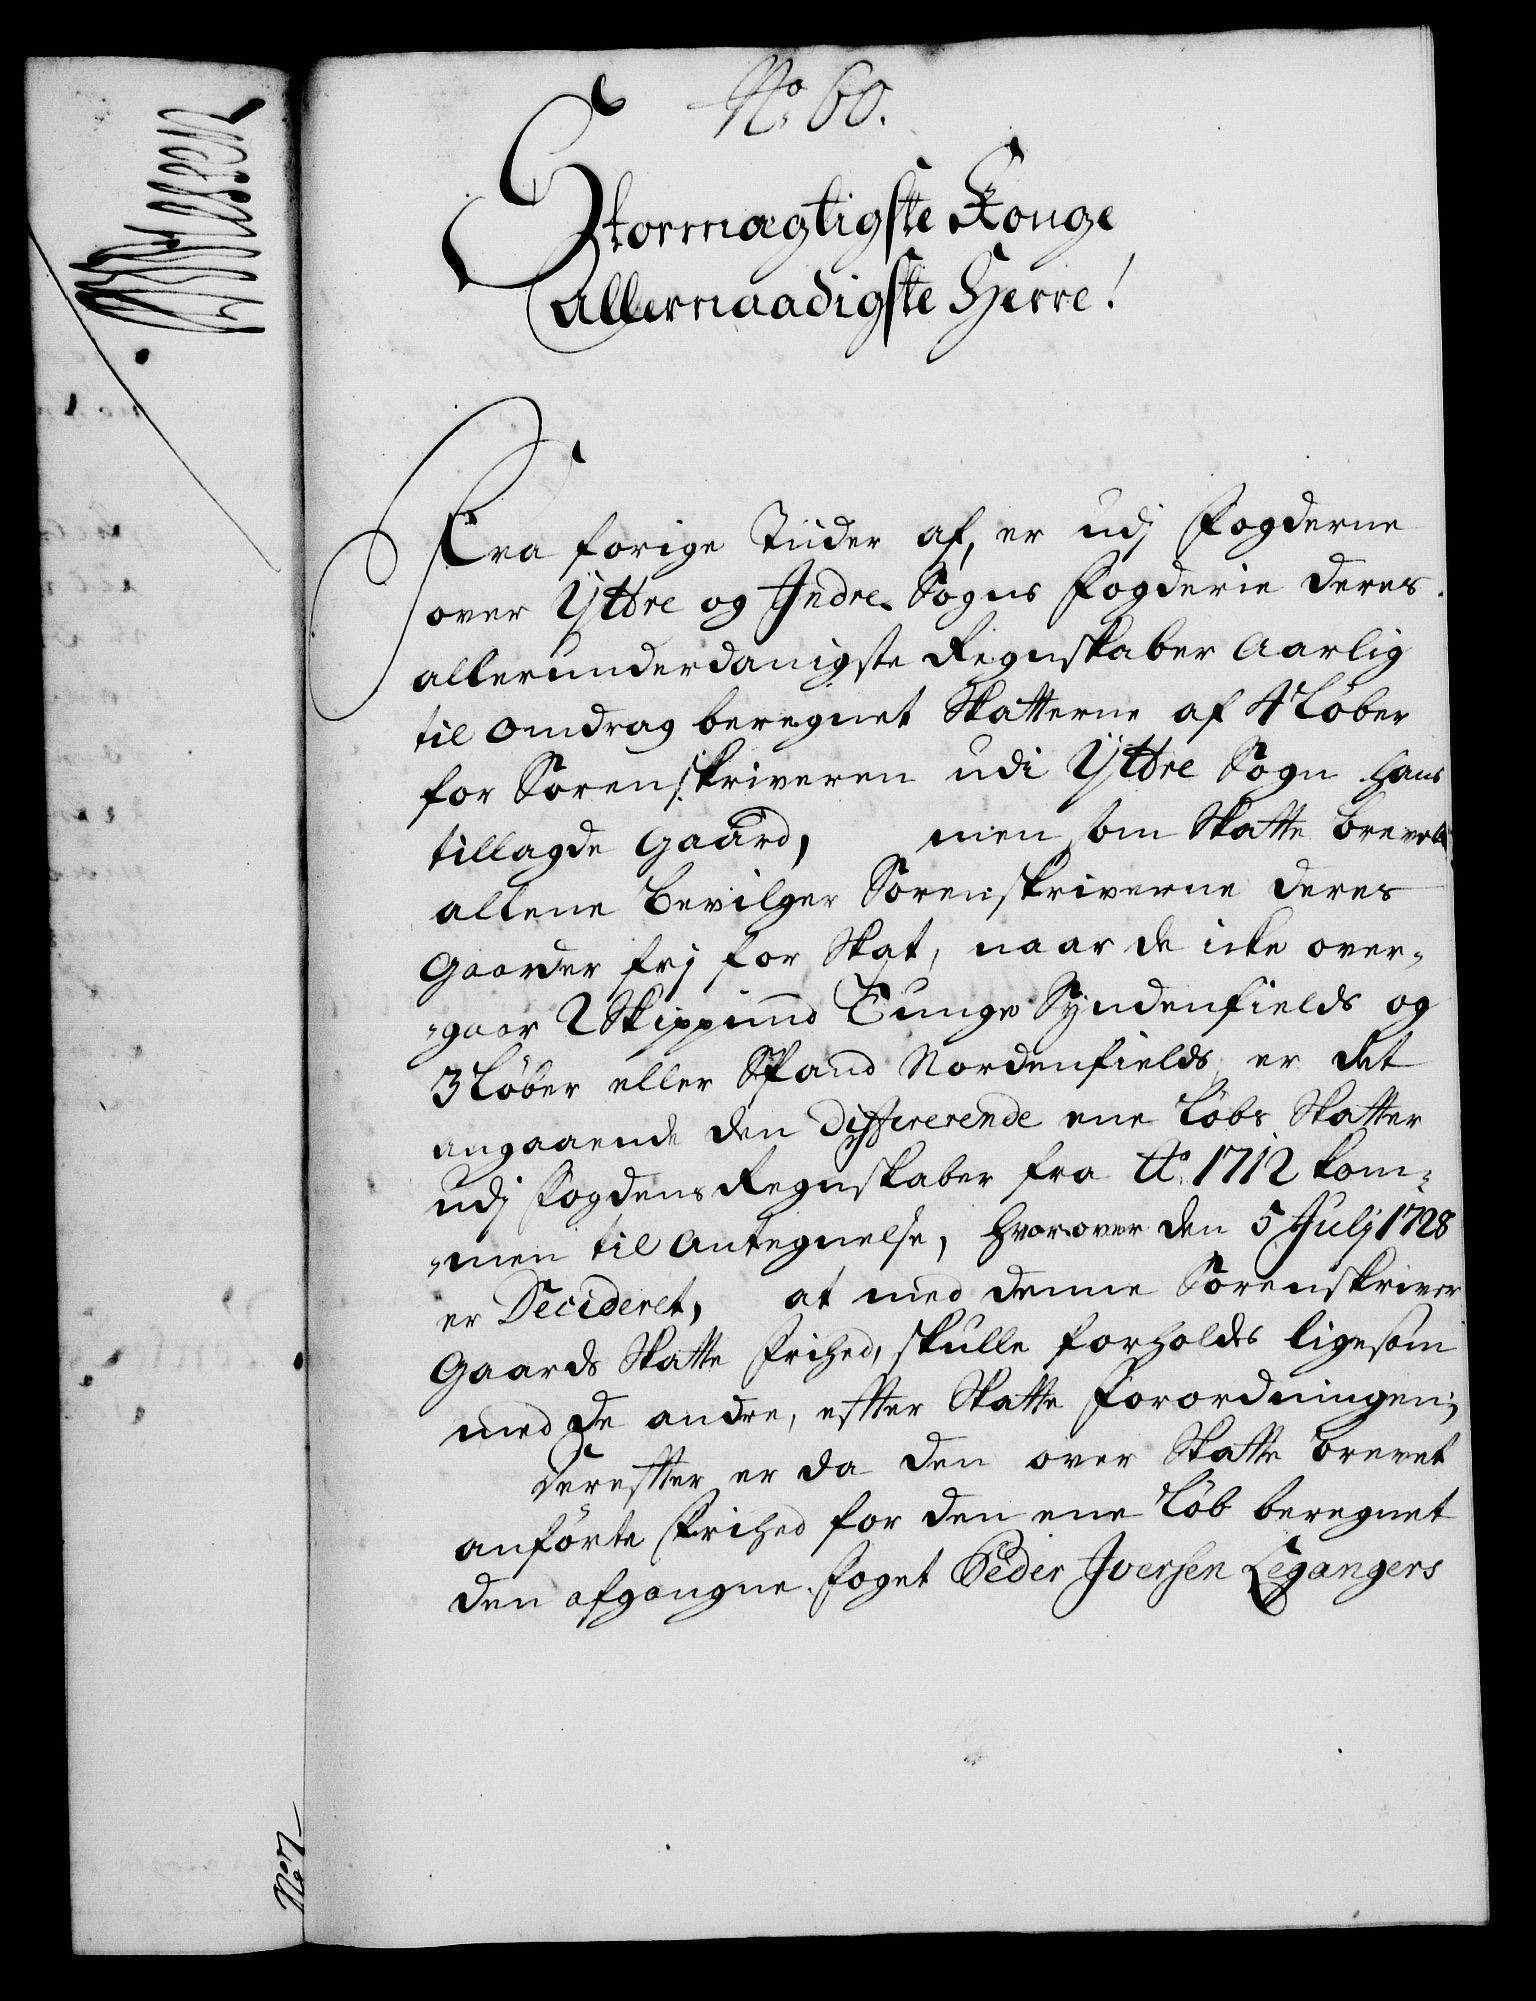 No 60.
Stormægtigste Konge
Allernaadigste Herre!
Fra forige Tiider af, er udj Fogderne
over Ÿttre og Indre Sogns Fogderie deres
allerunderdanigste Regnskaber Aarlig
til omdrag beregnet Skatterne af 4 Løber
for Sorenskriveren udi Ÿttre Sogn hans
tillagde Gaard, men som Skatte brevene
allene bevilger Sorenskriverne deres
Gaarder frj for Skat, naar de icke over-
-gaar 2 Skippund Tunge Syndenfields og
3 Løber eller Spand Nordenfields, er det
angaaende den differerende ene Løbs Skatter
udj Fogdens Regnskaber fra Ao. 1712 kom-
-men til Antegnelse, hvorover den 5 Julj 1728
er Decideret, at med denne Sorenskriver
Gaards Skatte Frihed, skulle forholdes ligesom
med de andre, efter Skatte Forordningen;
Derefter er da den over Skatte brevet
anførte Frihed for den ene Løb beregnet
den afgangne Foget Peder Iversen Legangers